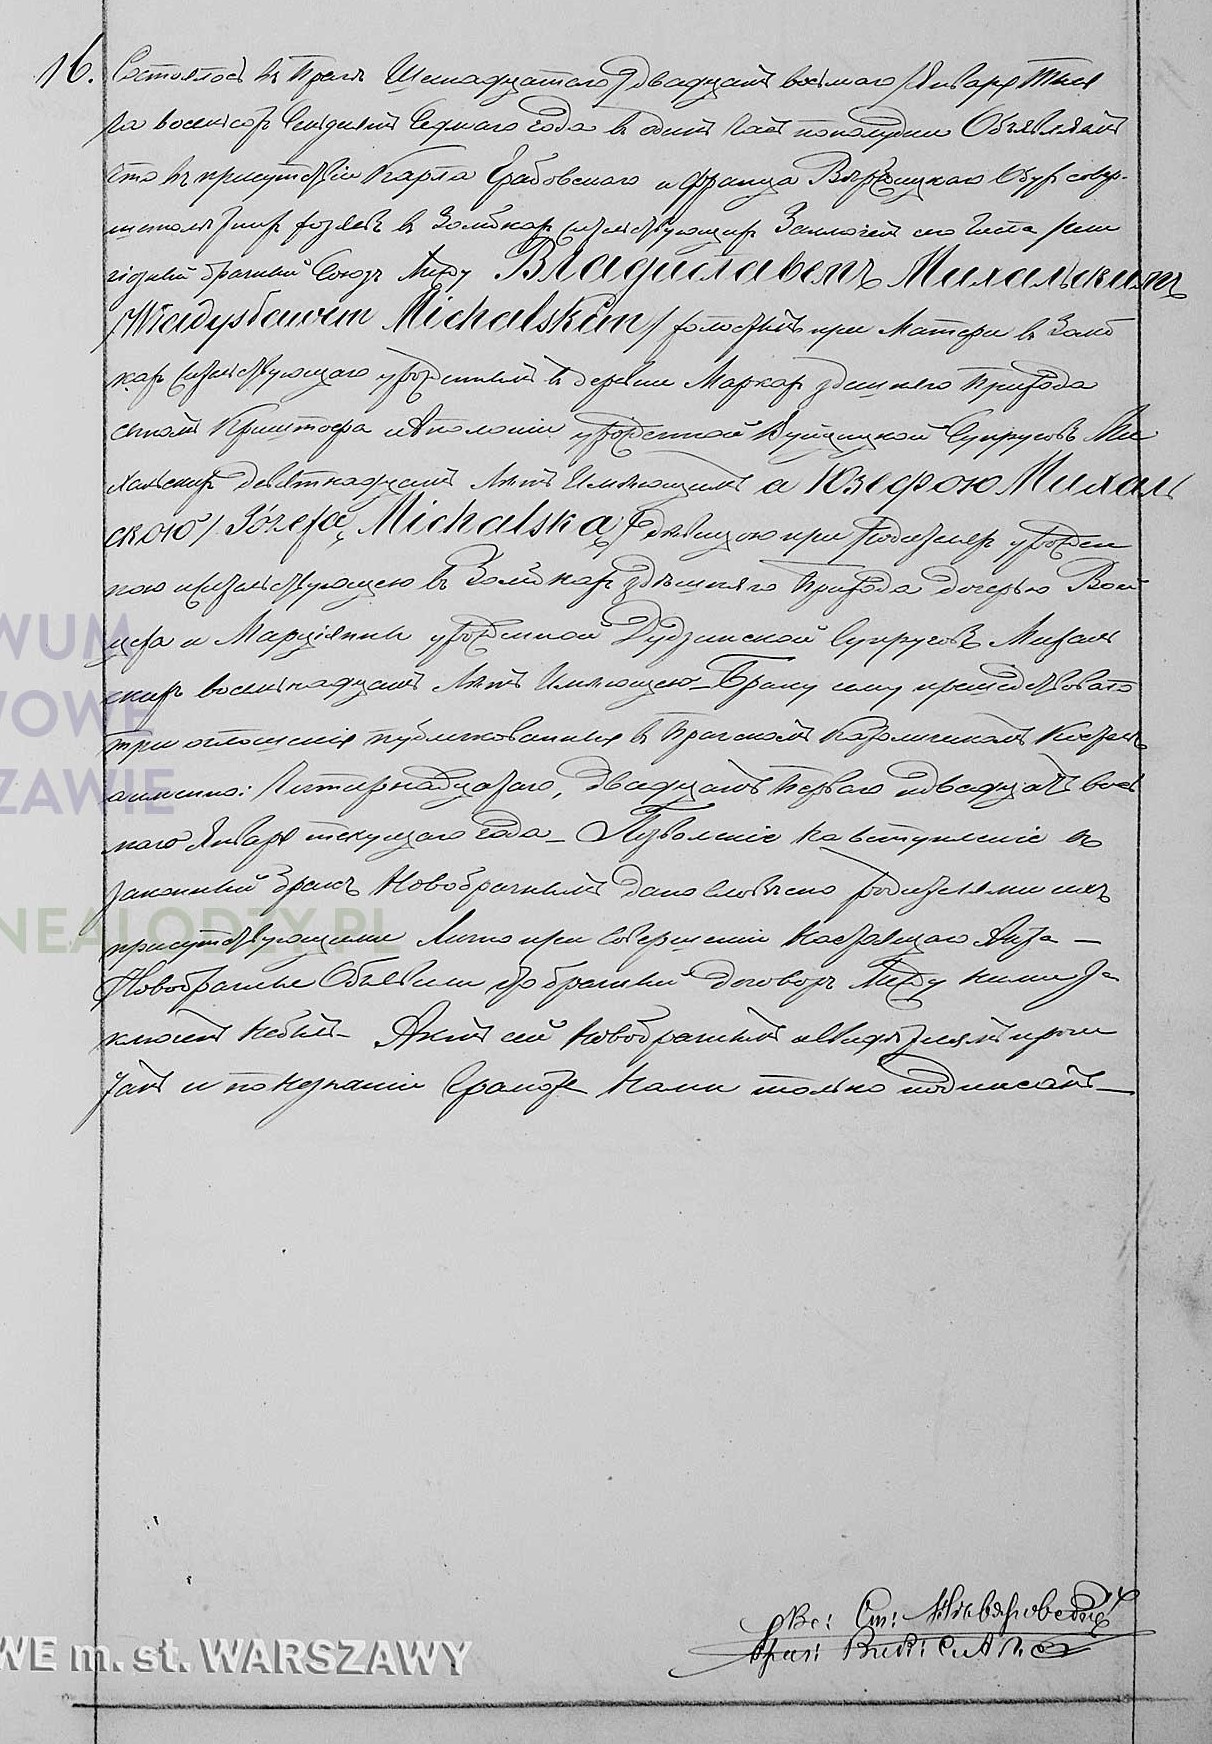 16. Состоялось въ Праге Шестнадцатаго /двадцать восьмаго/ Января Тыся
ча восемсотъ семдесятъ седмаго года въ одинъ часъ пополудни Объявляемъ
что въ присутствіи Карла Грабовскаго и Франца обухъ совер-
шеннолѣтнихъ въ жительствующихъ Заключенъ сего числа рели
гіозный брачный Союзъ Между Владиславомъ Михальскимъ
/Władysławem Michalskim/ холостымъ при Матери въ
жительствующаго урожденнымъ въ деревни Маркахъ здешняго Прихода
сыномъ Криштофа и Аполоніи урожденной Вуйцицкой Супруговъ Ми
хальскихъ девятнадцать лѣтъ Имѣющимъ а Юзефою Михаль
скою / Józefą Michalską / дѣвицою при Родителяхъ урожден
ною и жительствующею въ здѣшняго Прихода дочерью Вой
цеха и Марціянны урожденной Дудзинской Супруговъ Михаль
скихъ восемнадцать Лѣтъ Имѣющею – Браку сему предшествовало
три оглашенія публикованныя въ Прагскомъ Католическомъ Костелѣ
а именно: Четырнадцатаго, двадцать перваго и двадцать вось
маго Января текущаго года – Позволеніе на вступленіе въ
законный бракъ Новобрачнымъ дано словесно родителями ихъ
присутствующими Лично при Совершеніи Настоящаго Акта –
Новобрачные Объявили что брачный договоръ Между ними За-
ключенъ небылъ – Актъ сей Новобрачнымъ и Свидетелямъ прочи
танъ и по незнанію Грамоте Нами только подписанъ –
WUM
WOWE
ZAWIE
NEALODZY.PL
WE m. st. WARSZAWY